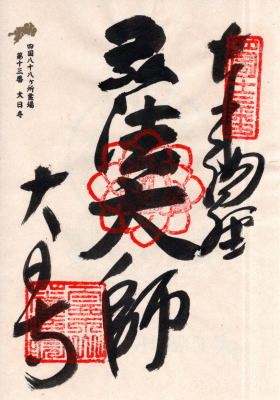 奉納経
弘法大師
大日寺
四国八十八ヶ所霊場
第十三番 大日寺